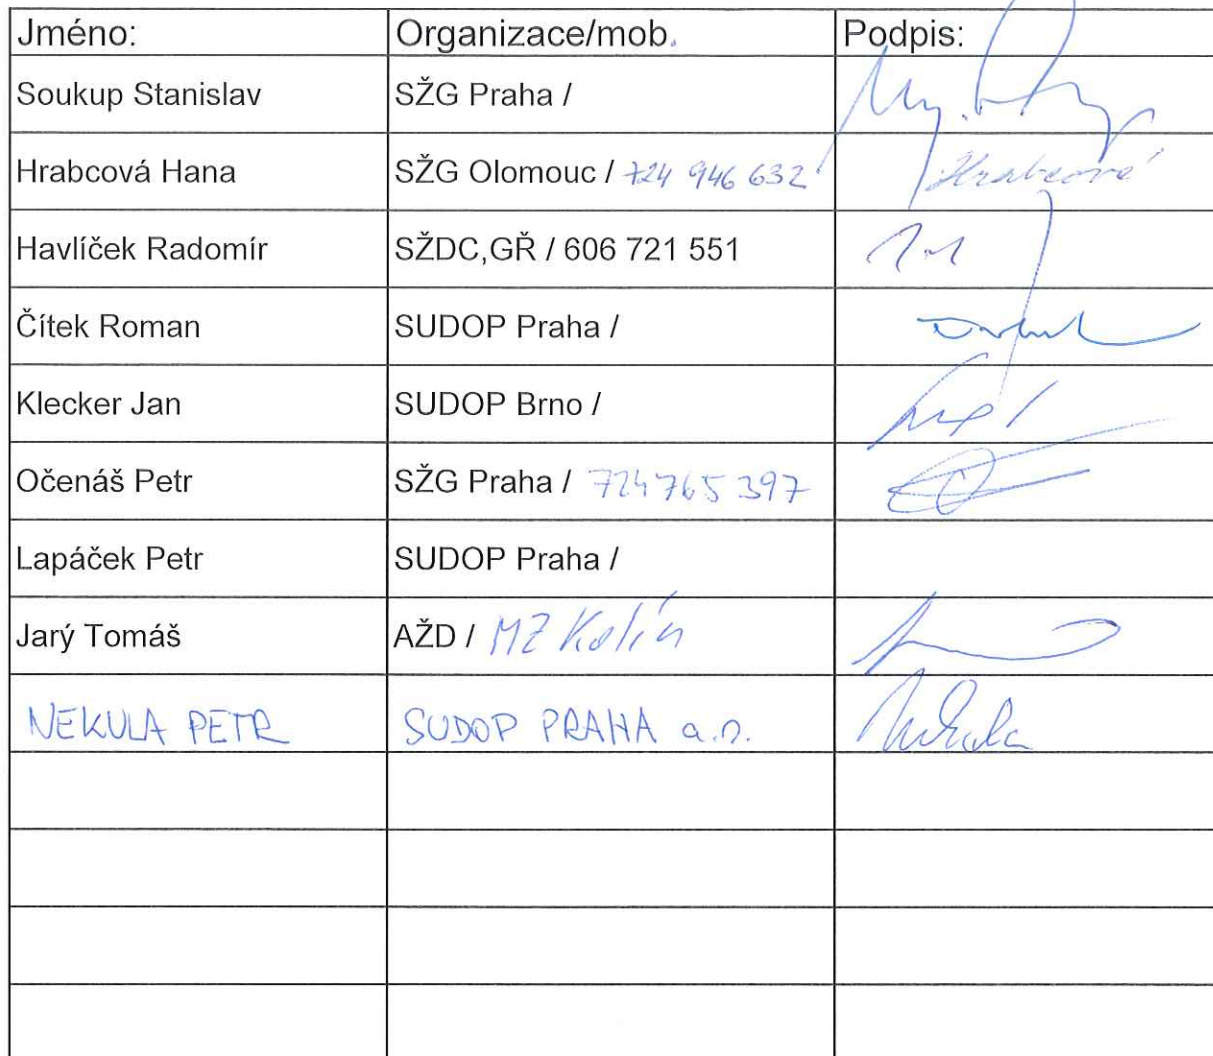 Jméno: Organizace/mob. Podpis:
Soukup Stanislav SŽG Praha /
Hrabcová Hana SŽG Olomouc / 724 946 632 Hrabcová
Havlíček Radomír SŽDC,GŘ / 606 721 551
Čítek Roman SUDOP Praha /
Klecker Jan SUDOP Brno /
Očenáš Petr SŽG Praha / 724765397
Lapáček Petr SUDOP Praha /
Jarý Tomáš AŽD / MZ Kolín
NEKULA PETR SUDOP PRAHA a.s. Nekula